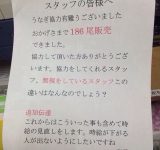 スタッフの皆様へ
うなぎ協力有難うございました
おかげさまで186尾販売
できました。
協力して頂いた方ありがとうござい
ます。協力をしてくれるスタッフ、
無視をしているスタッフこの
違いはなんなのでしょう?
追加伝達
これからはこういった事も含めて時
給の見直しをします。時給が下がる
人が出ないようにしたいですね